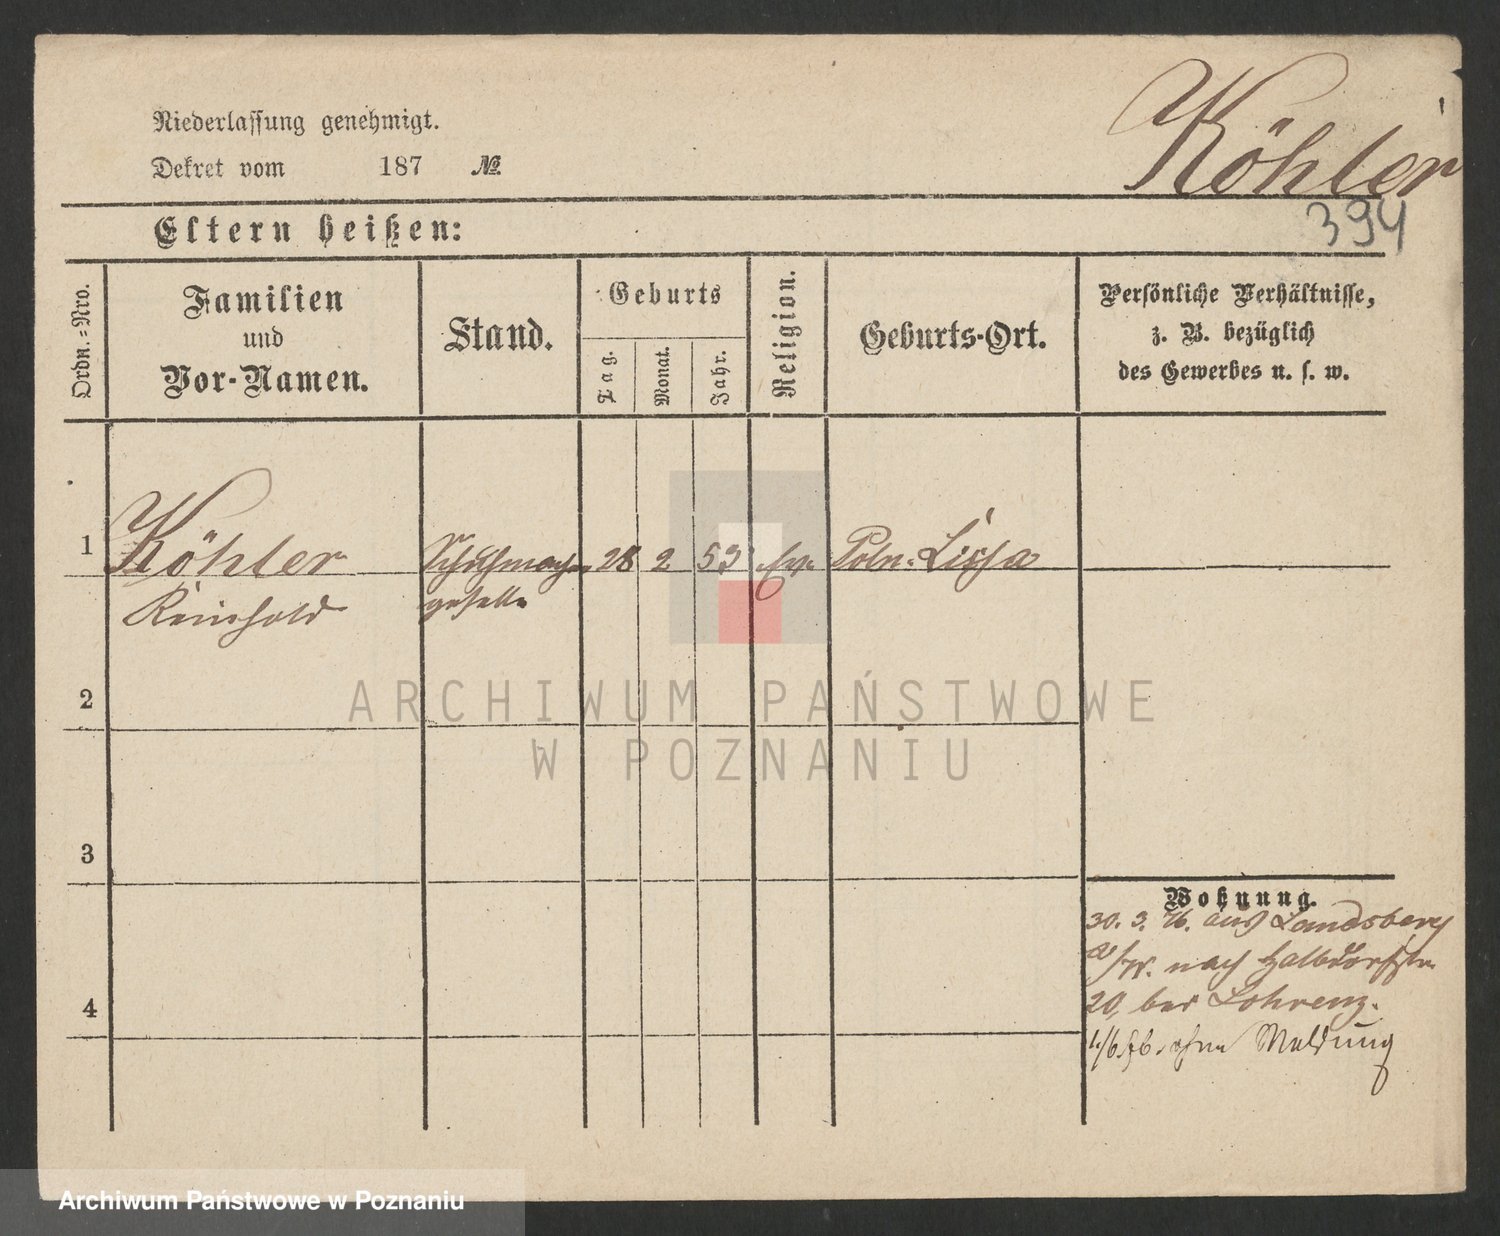 Niederlassung genehmigt.
Dekret vom 187 №
Köhler
394
Eltern heißen:
Ordn.-Nro.
Familien
und
Vor-Namen.
Stand.
Geburts
Tag.
Monat.
Jahr.
Religion.
Geburts-Ort.
Persönliche Verhältnisse,
z. B. bezüglich
des Gewerbes u. s. w.
1 Köhler Schuhmacher 28 2 53 ev. Poln. Lissa
Reinhold geselle
2
3
4
Wohnung.
30. 3. 76. aus Landsberg
a/W. nach Halbdorfstr.
20, bei Lohrenz.
ohne Meldung
ARCHIWUM PAŃSTWOWE
W POZNANIU
Archiwum Państwowe w Poznaniu